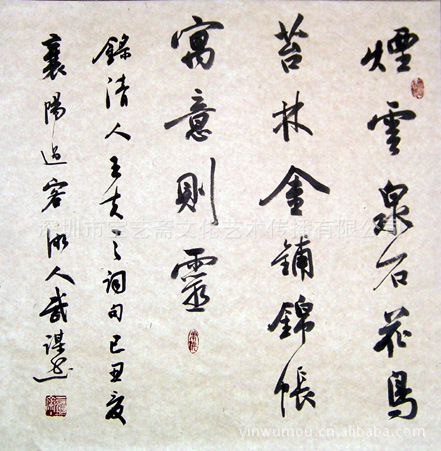 煙雲泉石花鳥
苔林金鋪錦帳
寓意則靈
錄清人王夫之詞句己丑夏
襄陽過客 人武謀
深圳市艺斋文化艺术传播有限公司
yinwumou.cn.alibaba.com